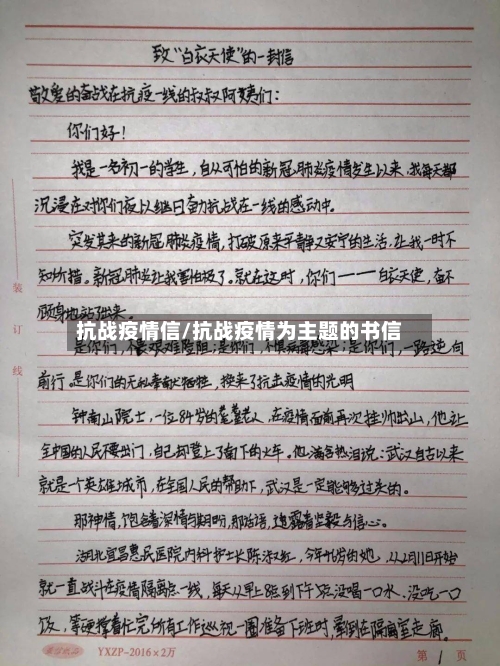 致“白衣天使”的一封信
敬爱的奋战在抗疫一线的叔叔阿姨们：
你们好！
我是一名初一的学生，自从可怕的新冠肺炎疫情发生以来，我每天都
沉浸在对你们夜以继日奋力抗战在一线的感动中。
突发其来的新冠肺炎疫情，打破原来平静又安宁的生活，让我一时不
知所措。新冠肺炎让我害怕极了。就在这时，你们——白衣天使，奋不
顾身地站了出来。
抗战疫情信/抗战疫情为主题的书信
是你们，不畏艰难险阻；是你们，不惧病毒感染；是你们，一路逆向
前行。是你们的无私奉献牺牲，换来了抗击疫情的光明
钟南山院士，一位84岁的耄耋老人，在疫情面前再次挂帅出山，他让
全中国的人民不要出门，自己却登上了南下的火车。他满含热泪说：武汉自古以来
就是一个英雄城市，在全国人民的帮助下，武汉是一定能够过关的。
那神情，饱含着深情与期盼，那话语，透露着坚毅与信心。
湖北宜昌惠民医院内科护士长陈淑红，今年的她，从2月11日开始
就一直战斗在疫情隔离点一线，每天从早上8点到下午5点没喝一口水、没吃一口
饭，等硬撑着忙完所有工作巡视一圈准备下班时，晕倒在隔离室走廊。
装
订
线
YXZP-2016×2万
第 1 页